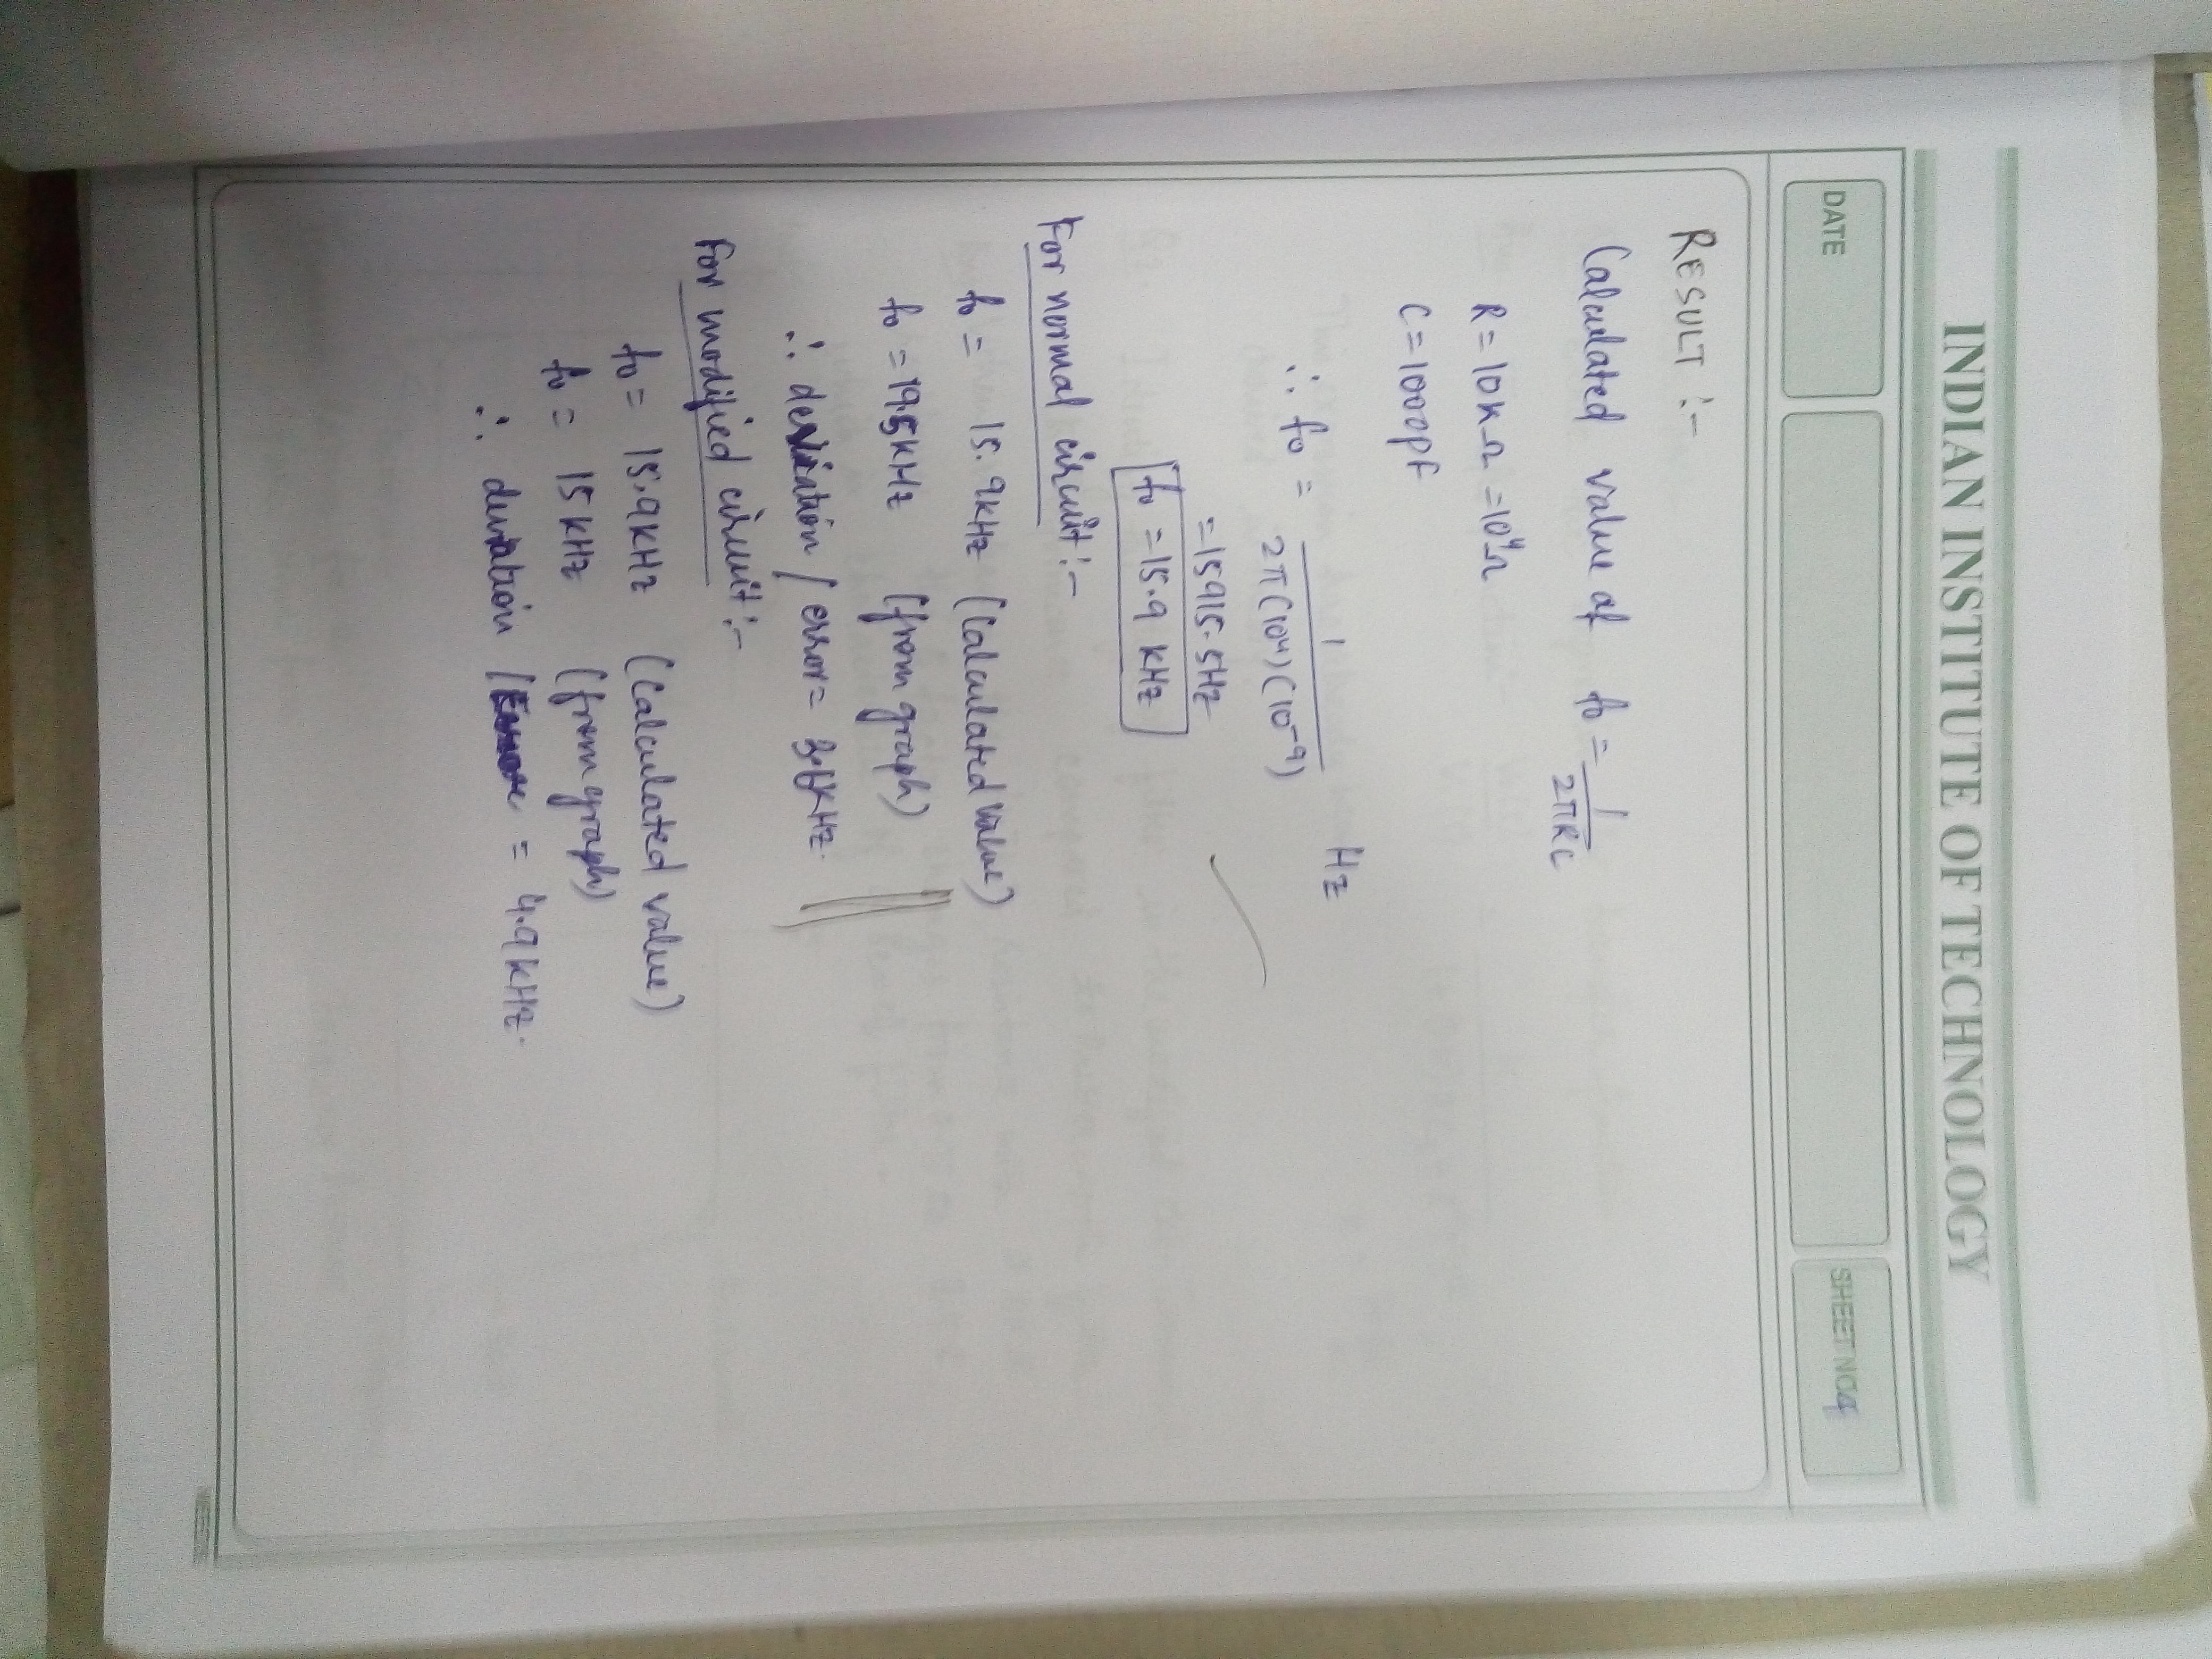 INDIAN INSTITUTE OF TECHNOLOGY
DATE
SHEET NO 4
RESULT :-
Calculated value of fo = 1/2πRC
R = 10KΩ = 10⁴Ω
C = 1000pF
∴ fo = 1/2π(10⁴)(10⁻⁹) Hz
= 15915.5Hz
fo = 15.9 KHz
For normal circuit :-
fo = 15.9KHz (Calculated value)
fo = 19.5KHz (from graph)
∴ deviation / error = 3.6KHz.
For modified circuit :-
fo = 15.9KHz (Calculated value)
fo = 15 KHz (from graph)
∴ deviation / Error = 4.9KHz.